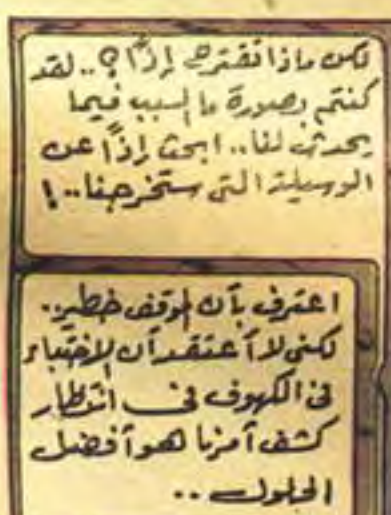 لكن ماذا تقترح إذاً؟.. لقد
كنتم بصورة ما السبب فيما
يحدث لنا.. ابحث إذاً عن
الوسيلة التي ستخرجنا..!
اعترف بأن الموقف خطير..
لكني لا أعتقد أن الاختباء
في الكهوف في انتظار
كشف أمرنا هو أفضل
الحلول..